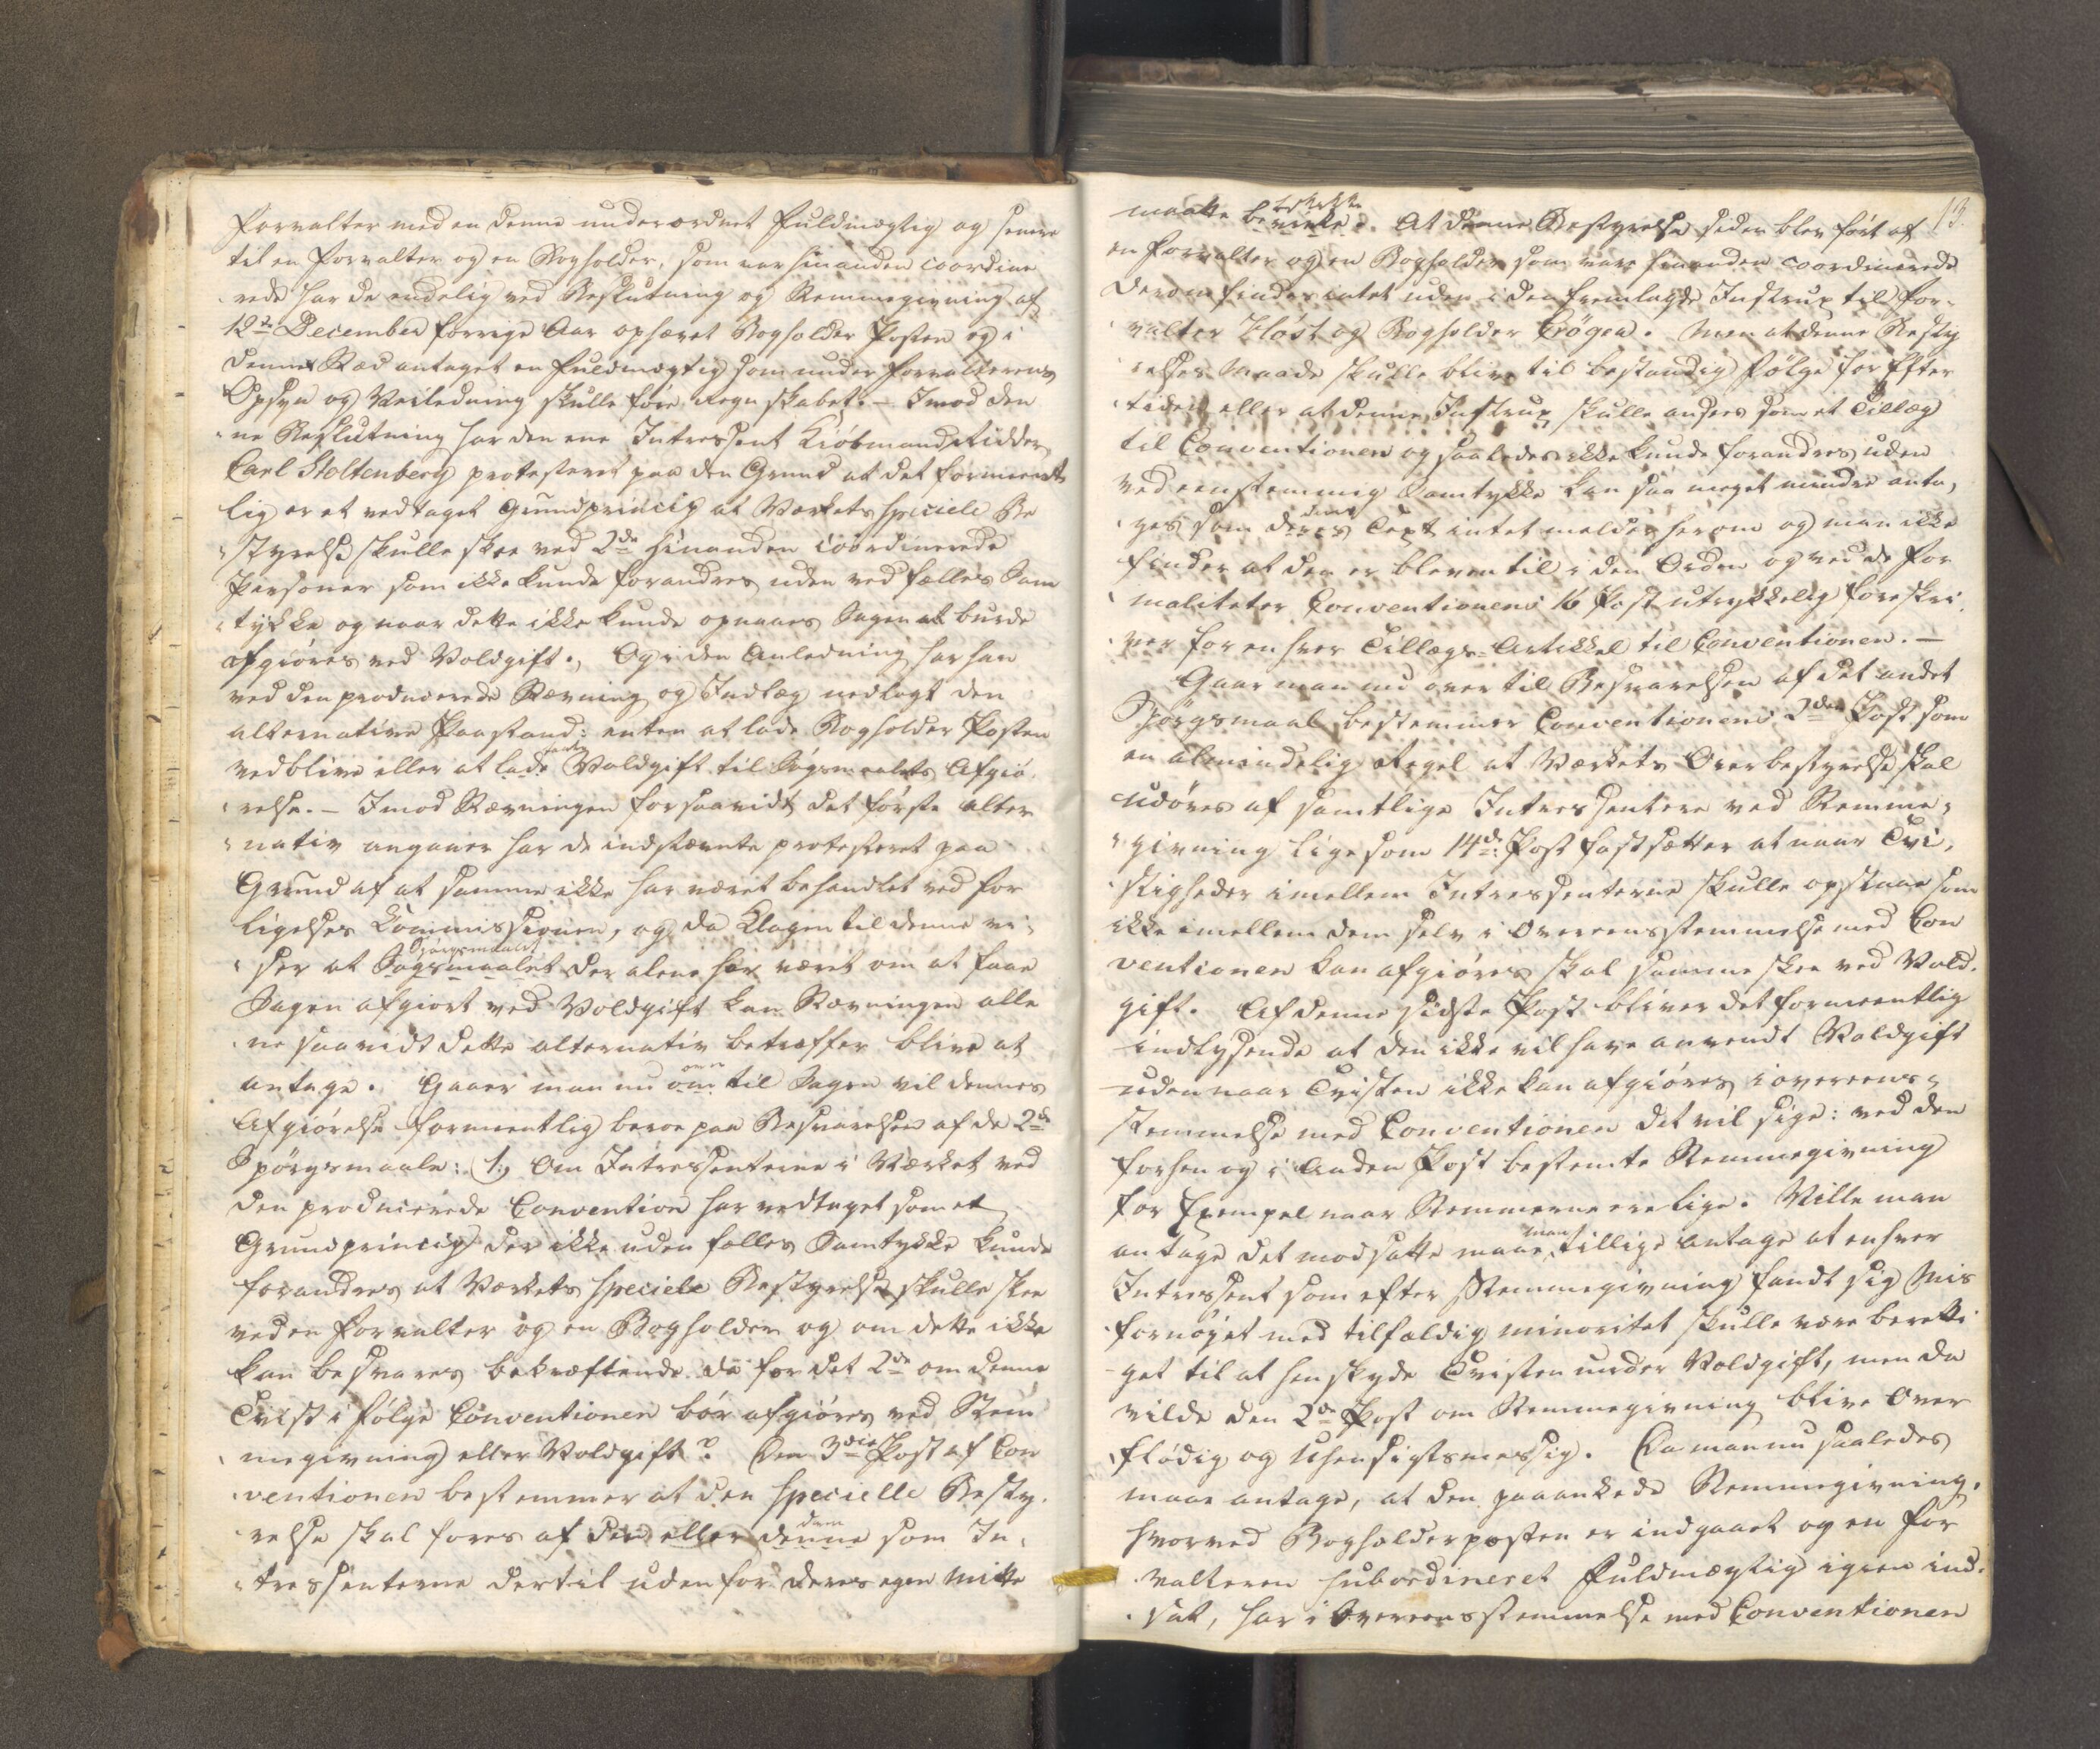 Forvalter med en denne underordnet Fuldmægtig og senere
til en Forvalter og en Bogholder, som var hinanden coordine
rede har de endelig ved Beslutning og Stemmegivning af
12te December forrige Aar ophævet Bogholder Posten og i
dennes Sted antaget en Fuldmægtig som under Forvalterens
Opsyn og Veiledning skulle føre Regnskabet. - Imod den
ne Beslutning har den ene Intressent Kiøbmand Ridder
Carl Stoltenberg protesteret paa den Grund at det formeent
lig er et vedtaget Grundprincip at Værkets speciele Be
styrelse skulle skee ved 2de hinanden coordinerede
Personer som ikke kunde forandres uden ved fælles Sam
tykke og naar dette ikke kunde opnaaes Sagen at burde
afgiøres ved Voldgift., Og i den Anledning har han
ved den producerede Stævning og Indlæg nedlagt den
alternative Paastand: enten at lade Bogholder Posten
vedblive eller at lade Voldgift til Søgsmaalets Afgiø
relse. - Imod Stævningen forsaavidt det første alter
nativ angaaer har de indstævnte protesteret paa
Grund af at samme ikke har været behandlet ved For
ligelses Commissionen, og da Klagen til denne vi
Spørgsmaalet
ser at Søgsmaalet der alene har været om at faae
Sagen afgiort ved Voldgift kan Stævningen alle
ne saavidt dette alternativ betræffer blive at
over
antage. Gaaer man nu om til Sagen vil dennes
Afgiørelse formeentlig beroe paa Besvarelsen af de 2de
Spørgsmaale: 1, Om Intressenterne i Værket ved
den producerede Convention har vedtaget som et
Grundprincip der ikke uden fælles Samtykke kunde
forandres at Værkets speciele Bestyrelse skulle skee
ved en Forvalter og en Bogholder og om dette ikke
kan besvares bekræftende da for det 2de om denne
Tvist i følge Conventionen bør afgiøres ved Stem
megivning eller Voldgift? Den 3die Post af Con
ventionen bestemmer at den specielle Besty
dem
relse skal føres af den eller denne som In
tressenterne dertil uden for deres egen Mitte
13.
maatte beviike. At denne Bestyrelse siden blev ført af
en Forvalter og en Bogholder som vare hinanden coordinerede
derom findes intet uden i den fremlagde Instrux til For
valter Høst og Bogholder Crøger. Men at denne Besty
relses Maade skulle blive til bestandig Følge for Efter
tiden eller at denne Instrux skulle ansees som et Tillæg
til Conventionen og saaledes ikke kunde forandres uden
ved eenstemmig Samtykke kan saa meget mindre anta
dens
ges som deres Text intet melder herom og man ikke
finder at den er bleven til i den Orden og ved de For
maliteter Conventionens 16 Post utrykkelig foreskri
ver for enhver Tillægs-Artikkel til Conventionen. -
Gaar man nu over til Besvarelsen af det andet
Spørgsmaal bestemmer Conventionens 2den Post som
en almindelig Regel at Værkets Overbestyrelse skal
udøves af samtlige Intressentere ved Stemme
givning ligesom 14de Post fastsætter at naar Tvi
stigheder imellem Intressenterne skulle opstaae som
ikke imellem dem selv i Overeensstemmelse med Con
ventionen kan afgiøres skal samme skee ved Vold
gift. Af denne sidste Post bliver det formeentlig
indlysende at den ikke vil have anvendt Voldgift
uden naar Tvisten ikke kan afgiøres i overeens
stemmelse med Conventionen det vil sige: ved den
forhen og i Anden Post bestemte Stemmegivning
for Exempel naar Stemmerne ere lige. Ville man
man
antage det modsatte maae tillige antage at enhver
Intressent som efter Stemmegivning fandt sig Mis
fornøyet med tilfældig minoritet skulle være beretti
get til at henskyde Tvisten under Voldgift, men da
vilde den 2de Post om Stemmegivning blive Over
flødig og Uhensigtsmessig. Da man nu saaledes
maae antage, at den paaankede Stemmegivning,
hvorved Bogholderposten er indgaaet og en For
valteren subordineret Fuldmægtig igien ind
sat, har i Overeensstemmelse med Conventionen